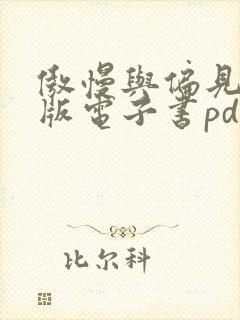 傲慢與偏見
版電子書pd
比尔科